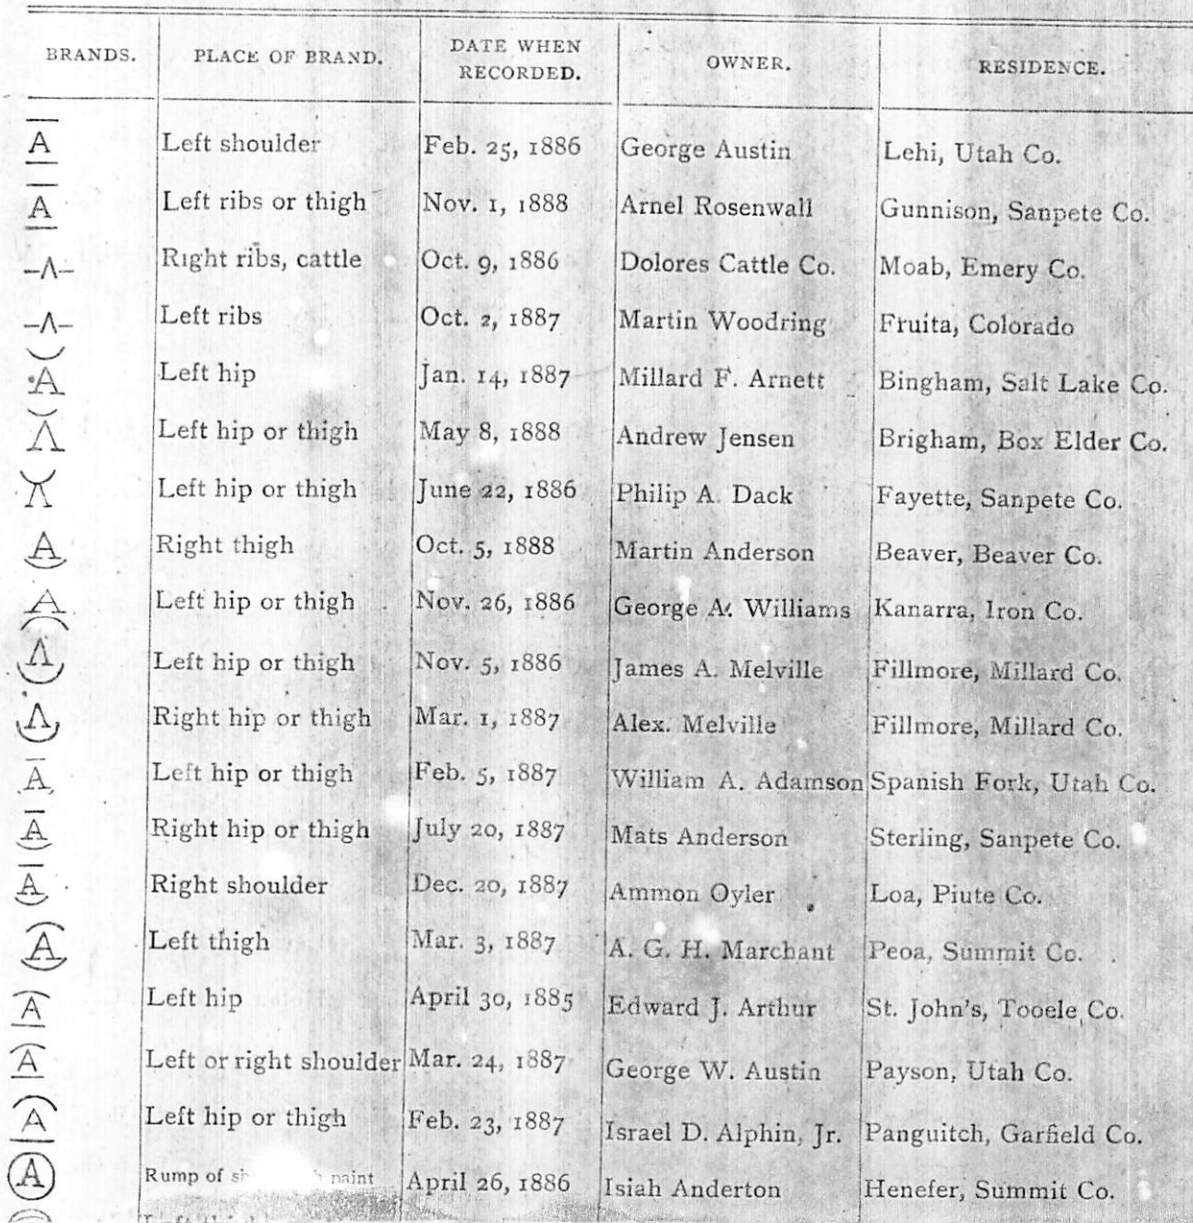 BRANDS. PLACE OF BRAND. DATE WHEN RECORDED. OWNER. RESIDENCE.
A Left shoulder Feb. 25, 1886 George Austin Lehi, Utah Co.
A Left ribs or thigh Nov. 1, 1888 Arnel Rosenwall Gunnison, Sanpete Co.
Right ribs, cattle Oct. 9, 1886 Dolores Cattle Co. Moab, Emery Co.
Left ribs Oct. 2, 1887 Martin Woodring Fruita, Colorado
A Left hip Jan. 14, 1887 Millard F. Arnett Bingham, Salt Lake Co.
Left hip or thigh May 8, 1888 Andrew Jensen Brigham, Box Elder Co.
Left hip or thigh June 22, 1886 Philip A. Dack Fayette, Sanpete Co.
A Right thigh Oct. 5, 1888 Martin Anderson Beaver, Beaver Co.
A Left hip or thigh Nov. 26, 1886 George A. Williams Kanarra, Iron Co.
Left hip or thigh Nov. 5, 1886 James A. Melville Fillmore, Millard Co.
Right hip or thigh Mar. 1, 1887 Alex. Melville Fillmore, Millard Co.
A Left hip or thigh Feb. 5, 1887 William A. Adamson Spanish Fork, Utah Co.
A Right hip or thigh July 20, 1887 Mats Anderson Sterling, Sanpete Co.
A Right shoulder Dec. 20, 1887 Ammon Oyler Loa, Piute Co.
A Left thigh Mar. 3, 1887 A. G. H. Marchant Peoa, Summit Co.
A Left hip April 30, 1885 Edward J. Arthur St. John's, Tooele Co.
A Left or right shoulder Mar. 24, 1887 George W. Austin Payson, Utah Co.
A Left hip or thigh Feb. 23, 1887 Israel D. Alphin, Jr. Panguitch, Garfield Co.
A Rump of paint April 26, 1886 Isiah Anderton Henefer, Summit Co.